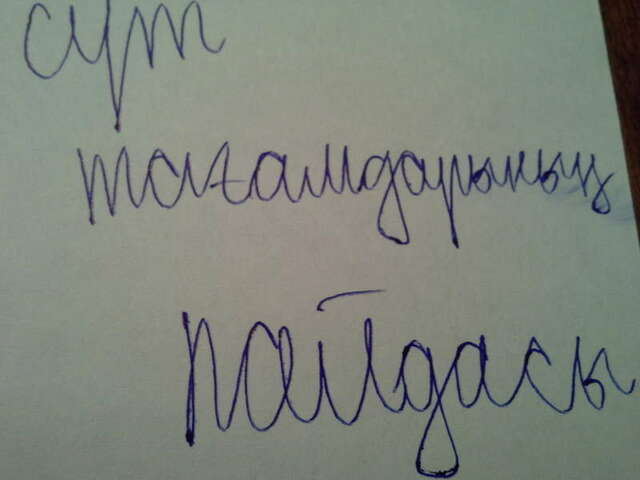 сүт
тағамдарының
пайдасы